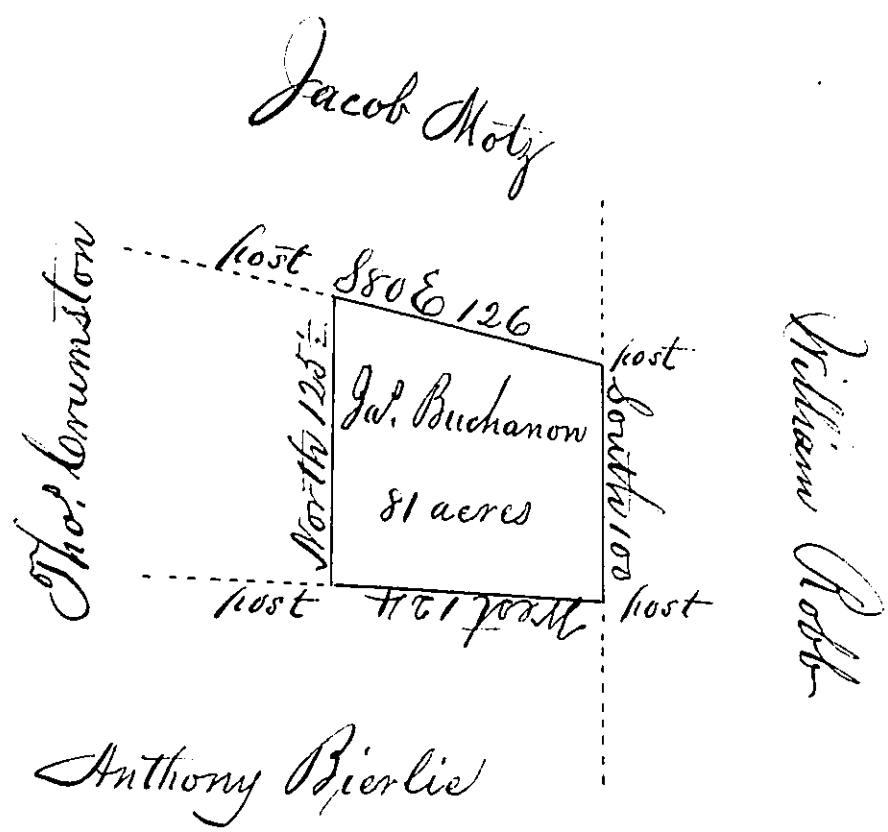 Jacob Motz
post
S80E 126
post
Tho.s Crumston
North 125½
Ja.s Buchanon
81 acres
South 100
William Robb
post
West 124
post
Anthony Bierlie